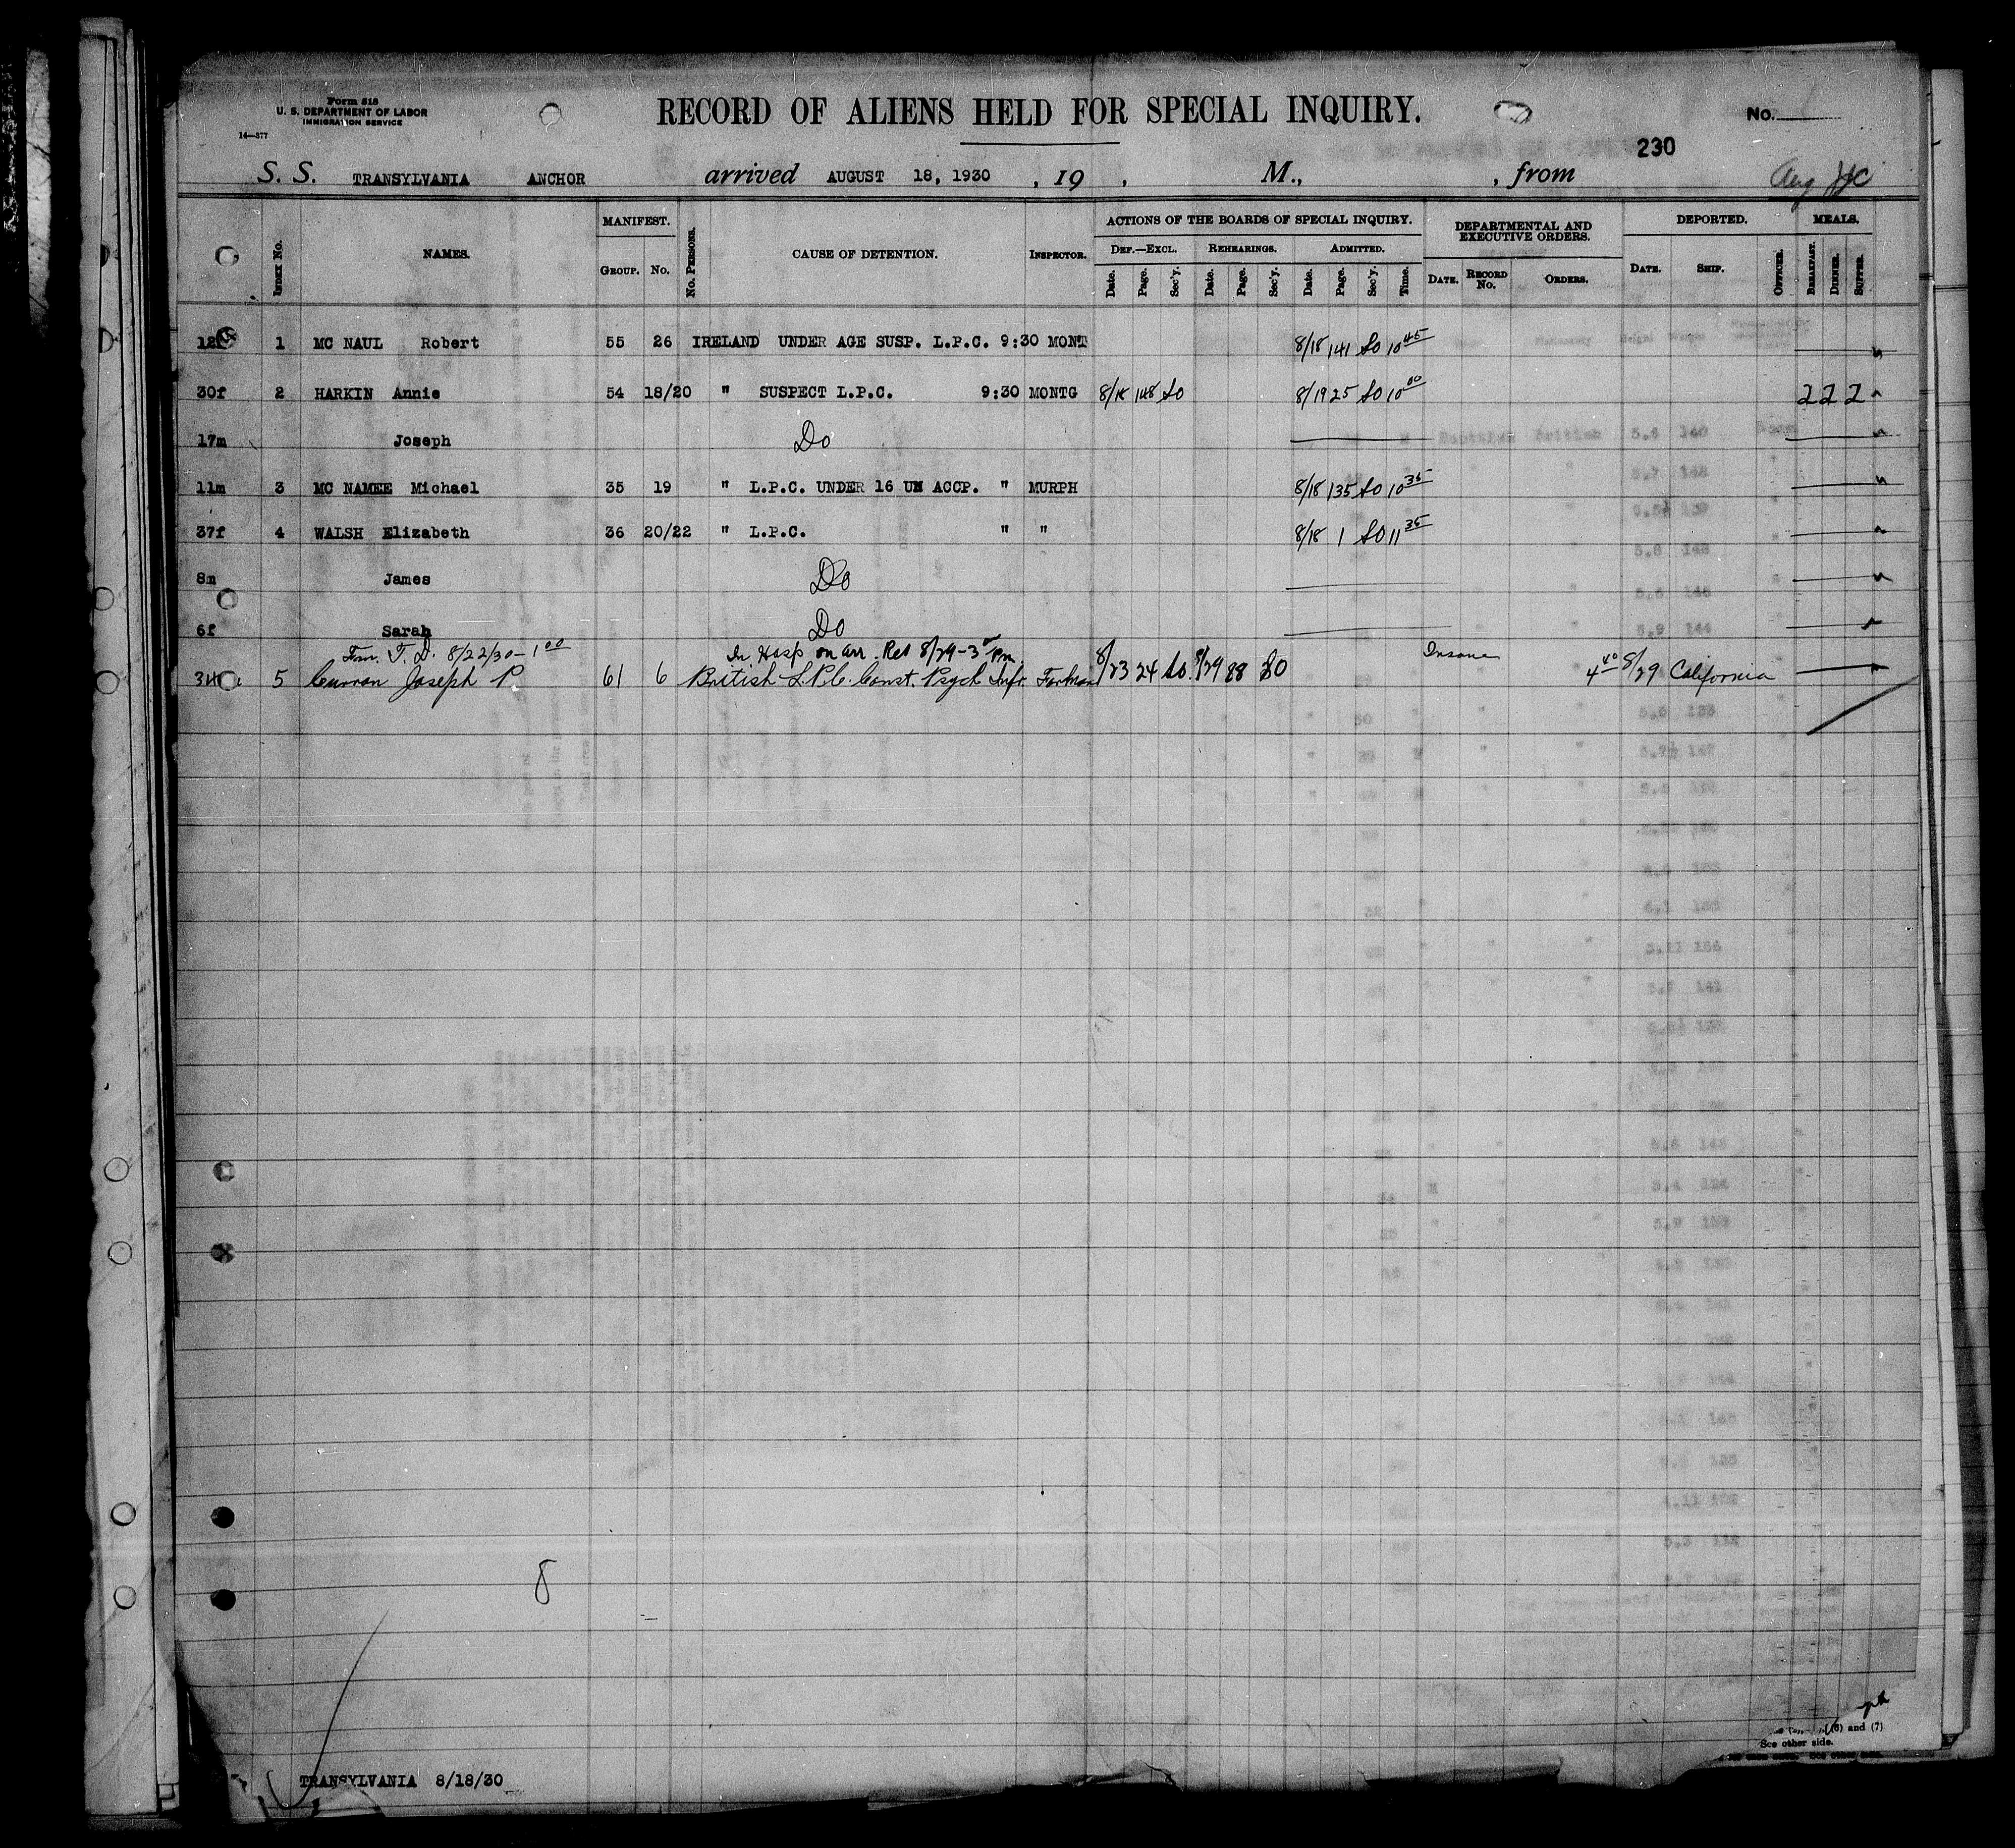 Form 518
U. S. DEPARTMENT OF LABOR
IMMIGRATION SERVICE
14—377
RECORD OF ALIENS HELD FOR SPECIAL INQUIRY.
No.
230
S. S. TRANSYLVANIA ANCHOR arrived AUGUST 18, 1930 , 19 , M., , from
Aug
MANIFEST. ACTIONS OF THE BOARDS OF SPECIAL INQUIRY. DEPARTMENTAL AND EXECUTIVE ORDERS. DEPORTED. MEALS.
Index No. NAMES. Group. No. No. Persons. CAUSE OF DETENTION. Inspector. Def.—Excl. Rehearings. Admitted.
Date. Page. Sec'y. Date. Page. Sec'y. Date. Page. Sec'y. Time. Date. Record No. Orders. Date. Ship. Officer. Breakfast. Dinner. Supper.
1 MC NAUL Robert 55 26 IRELAND UNDER AGE SUSP. L.P.C. 9:30 MONT 8/18 141 SO 10 45
30f 2 HARKIN Annie 54 18/20 " SUSPECT L.P.C. 9:30 MONTG 8/18 148 SO 8/19 25 SO 10 00 2 2 2
17m Joseph Do
11m 3 MC NAMEE Michael 35 19 " L.P.C. UNDER 16 UN ACCP. " MURPH 8/18 135 SO 10 35
37f 4 WALSH Elizabeth 36 20/22 " L.P.C. " " 8/18 1 SO 11 35
8m James Do
6f Sarah Do
T. D. 8/22/30 - 1 00 In Hosp on arr. Rel 8/29 - 3 Pm. Insane
5 Curran Joseph P 61 6 British L.P.C. Const. Psych Infr. 8/23 24 SO 8/29 88 SO 4 40 8/29 California
8
(6) and (7)
See other side.
TRANSYLVANIA 8/18/30